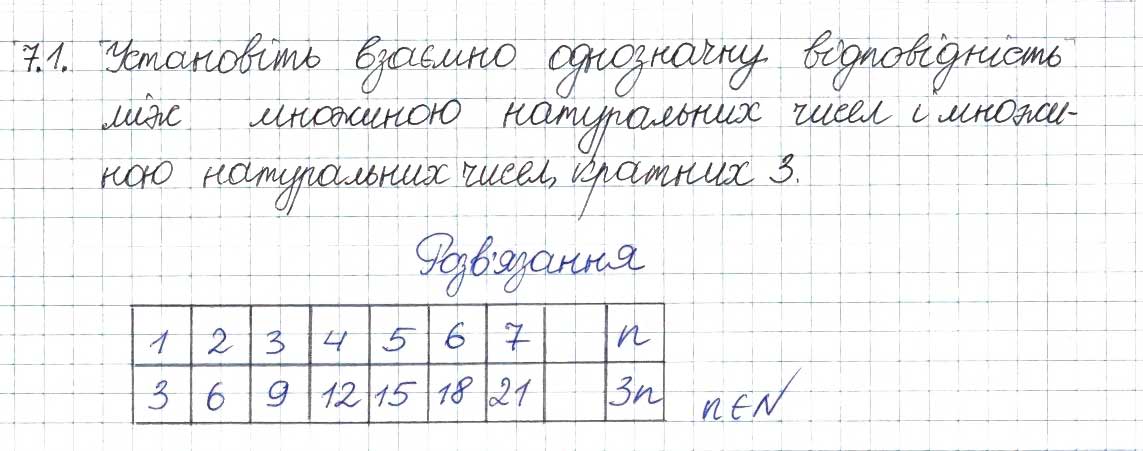 7.1. Установіть взаємно однозначну відповідність
між множиною натуральних чисел і множи-
ною натуральних чисел, кратних 3.
Розв'язання
1 2 3 4 5 6 7 n
3 6 9 12 15 18 21 3n n∈N